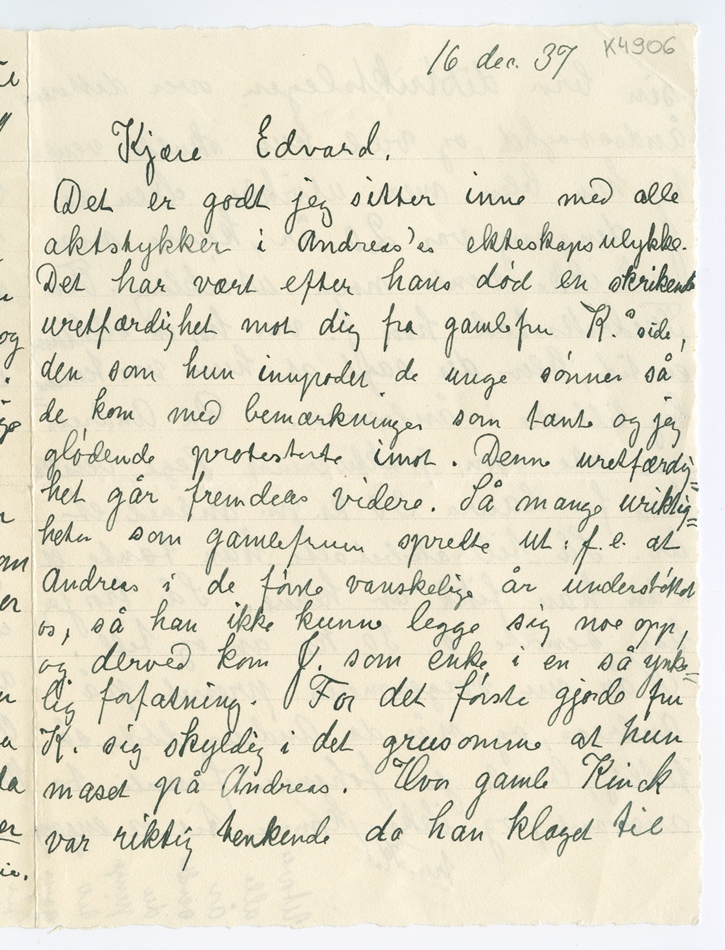 16 dec. 37 K4906
Kjære Edvard.
Det er godt jeg sitter inne med alle
aktstykker i Andreas'es ekteskapsulykke.
Det har vært efter hans död en skrikende
uretfærdighet mot dig fra gamlefru K.s side,
den som hun innpodet de unge sønner så
de kom med bemærkninger som tante og jeg
glödende protesterte imot. Denne uretfærdig=
het går fremdeles videre. Så mange uriktig=
heter som gamlefruen spredte ut: f.e. at
Andreas i de förste vanskelige år understöttet
os, så han ikke kunne legge sig noe opp,
og derved kom J. som enke i en så ynke=
lig forfatning. For det förste gjorde fru
K. sig skyldig i det grusomme at hun
maset på Andreas. Hvor gamle Kinck
var riktig tenkende da han klaget til